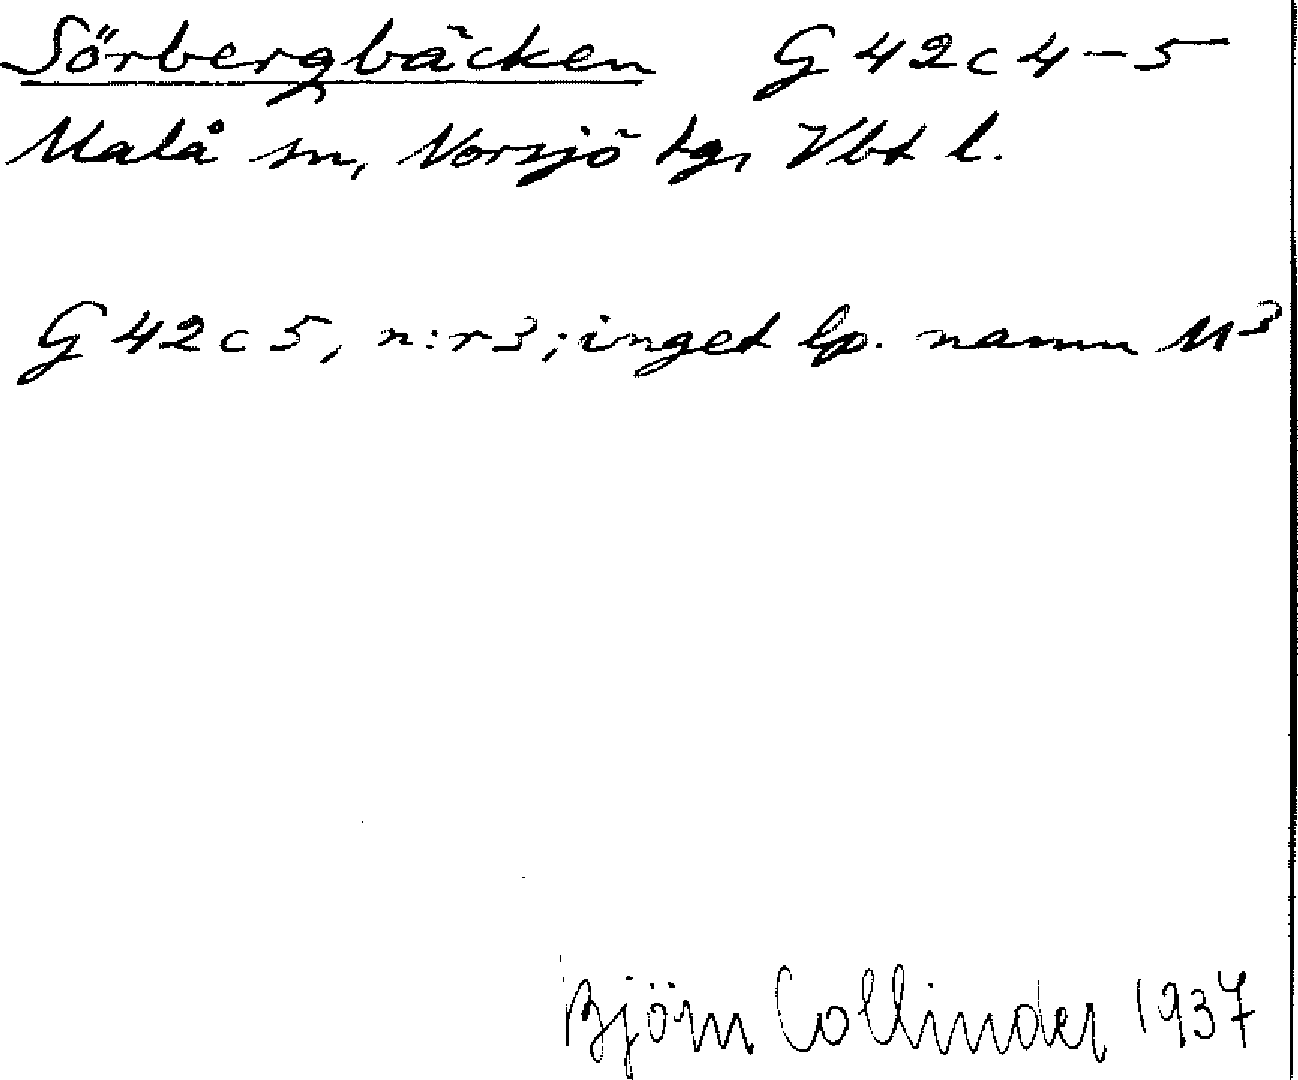 Sörbergbäcken G 42 c 4-5
Malå sn, Norsjö tg, Vbt l.
G 42 c 5, n:r 3; inget lp. namn M³
Björn Collinder 1937